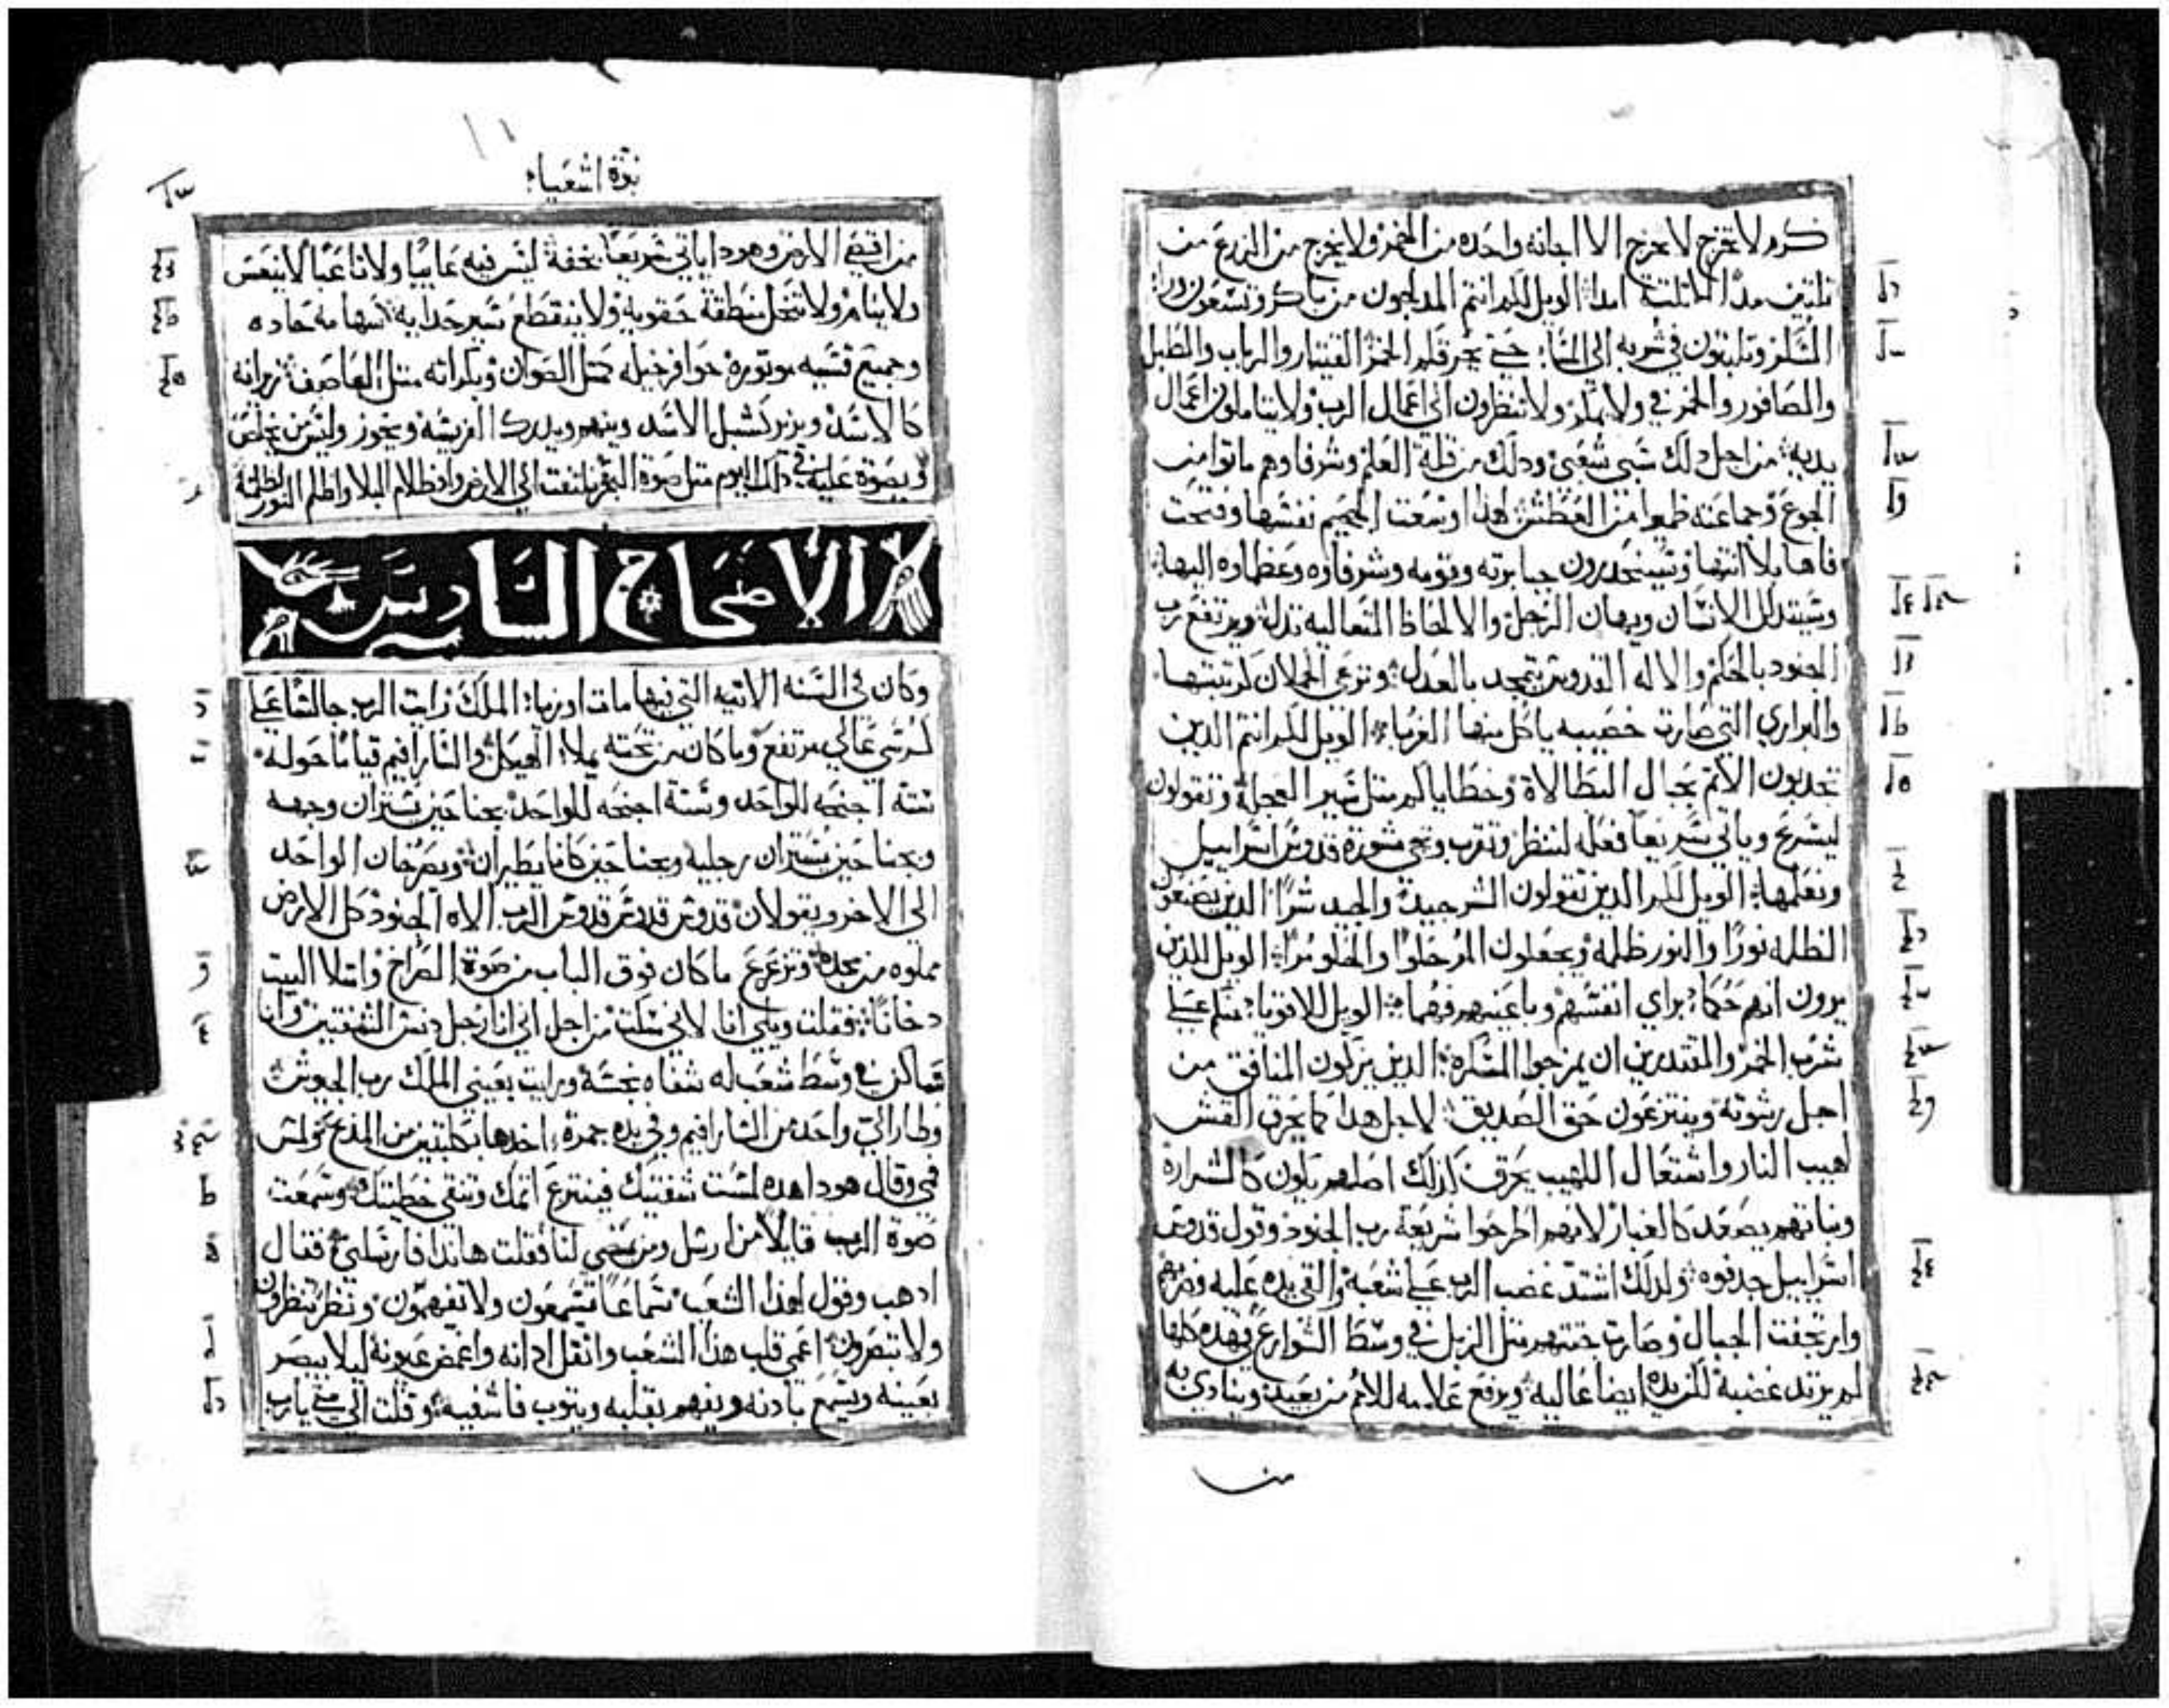 كرم لا تخرج لا تخرج الا اجانه واحده من الخمر ولا يخرج من الزرع من
ثلثين مدًا الا ثلثة امدا الويل لكم انتم المدلجون من باكر وتسعون ورا
السكر وتلبثون في شربه الى المسا حتي يحرقكم الخمر القيتار والرباب والطبل
والصافور والخمر في ولايمكم ولا تنظرون الى اعمال الرب ولا يتاملون اعمال
يديه من اجل دلك سبي شعبي ودلك من قلة العلم وشرفاوهم ماتوا من
الجوع وجماعته ظموا من العطش لهدا وسعت الجحيم نفسها وفتحت
فاها بلا انتها وسينحدرون جبابرته وقومه وشرفاوه وعظماوه اليها
وسيتدلل الانسان ويهان الرجل والالحاظ المتعاليه تدل ويرتفع رب
الجنود بالحكم والاله القدوس يتمجد بالعدل وترعى الحملان كرتبتها
والبراري التي صارت خصيبه ياكل منها الغربا الويل لكم انتم الدين
تجدبون الاتم بحبال البطالاة وخطاياكم مثل سير العجلة وتقولون
ليسرع وياتي سريعًا فعله لننظر وتقرب وتجي مشورة قدوس اسراييل
ونعلمها الويل لكم الدين تقولون الشر جيدًا والجيد شرًا الدين يصنعون
الظلمه نورًا والنور ظلمه ويجعلون المر حلوًا والحلو مرًا الويل للدين
يرون انهم حكما براي انفسهم وباعينهم فهما الويل للاقويا منكم علي
شرب الخمر والمقتدرين ان يمزجوا المسكره الدين يزكون المنافق من
اجل رشوته وينتزعون حق الصديق لاجل هدا كما يحرق القش
لهيب النار واشتعال اللهيب يحرق كدلك اصلهم يكون كالشرارة
ونباتهم يصعد كالغبار لانهم اطرحوا شريعة رب الجنود وقول قدوس
اسراييل جدفوه ولدلك اشتد غضب الرب علي شعبه والقي يده عليه وضربهم
وارتجفت الجبال وصارت جثتهم مثل الزبل في وسط الشوارع في هده كلها
لم يرتد غضبه لكن يده ايضا عاليه ويرفع علامه للامم من بعيد وينادي به
من
نبوة اشعياء
من اقصي الارض وهودا ياتي سريعًا بخفة ليس فيه عاييًا ولا تاعبًا لا ينعس
ولا ينام ولا تنحل منطقة حقويه ولا ينقطع سير حدايه سهامه حاده
وجميع قسيه موتوره حوافر خيله كمثل الصوان وبكراته مثل العاصف زيرانه
كالاسد ويزير كشبل الاسد وينهم ويدرك الفريسه ويحوز وليس من يخلص
ويصوة عليه في دلك اليوم مثل صوة البحر يلتفت الي الارض وادظلام البلا واظلم النور لظلمة
الاصحاح السادس
وكان في السنه الاتيه التي فيها مات اوزيا الملك رايت الرب جالسًا علي
كرسي عالي مرتفع وما كان من تحته يملا الهيكل والسارافيم قيامًا حوله
ستة اجنحه للواحد وستة اجنحه للواحد بجناحين يستران وجهه
وبجناحين يستران رجليه وبجناحين كانا يطيران ويصرخان الواحد
الي الاخر ويقولان قدوس قدوس قدوس الرب الاه الجنود كل الارض
مملوه من مجده وتزعزع ما كان فوق الباب من صوة الصراخ وامتلا البيت
دخانًا فقلت ويلي انا لاني سكت من اجل اني انا رجل دنس الشفتين وانا
ساكن في وسط شعب له شفاه نجسة ورايت بعيني الملك رب الجيوش
وطار الي واحد من السارافيم وفي يده جمرة اخدها بكلبتين من المدبح ولمس
فمي وقال هودا هده لمست شفتيك فينتزع اتمك وتنقي خطيتك وسمعت
صوة الرب قايلًا من ارسل ومن يمضي لنا فقلت هاندا فارسلني فقال
ادهب وقول لهدا الشعب سماعًا تسمعون ولا تفهمون ونظر تنظرون
ولا تبصرون اعمي قلب هدا الشعب واثقل ادانه واغمض عيونه ليلا يبصر
بعينيه ويسمع بادنه ويفهم بقلبه ويتوب فاشفيه وقلت الي متي يارب